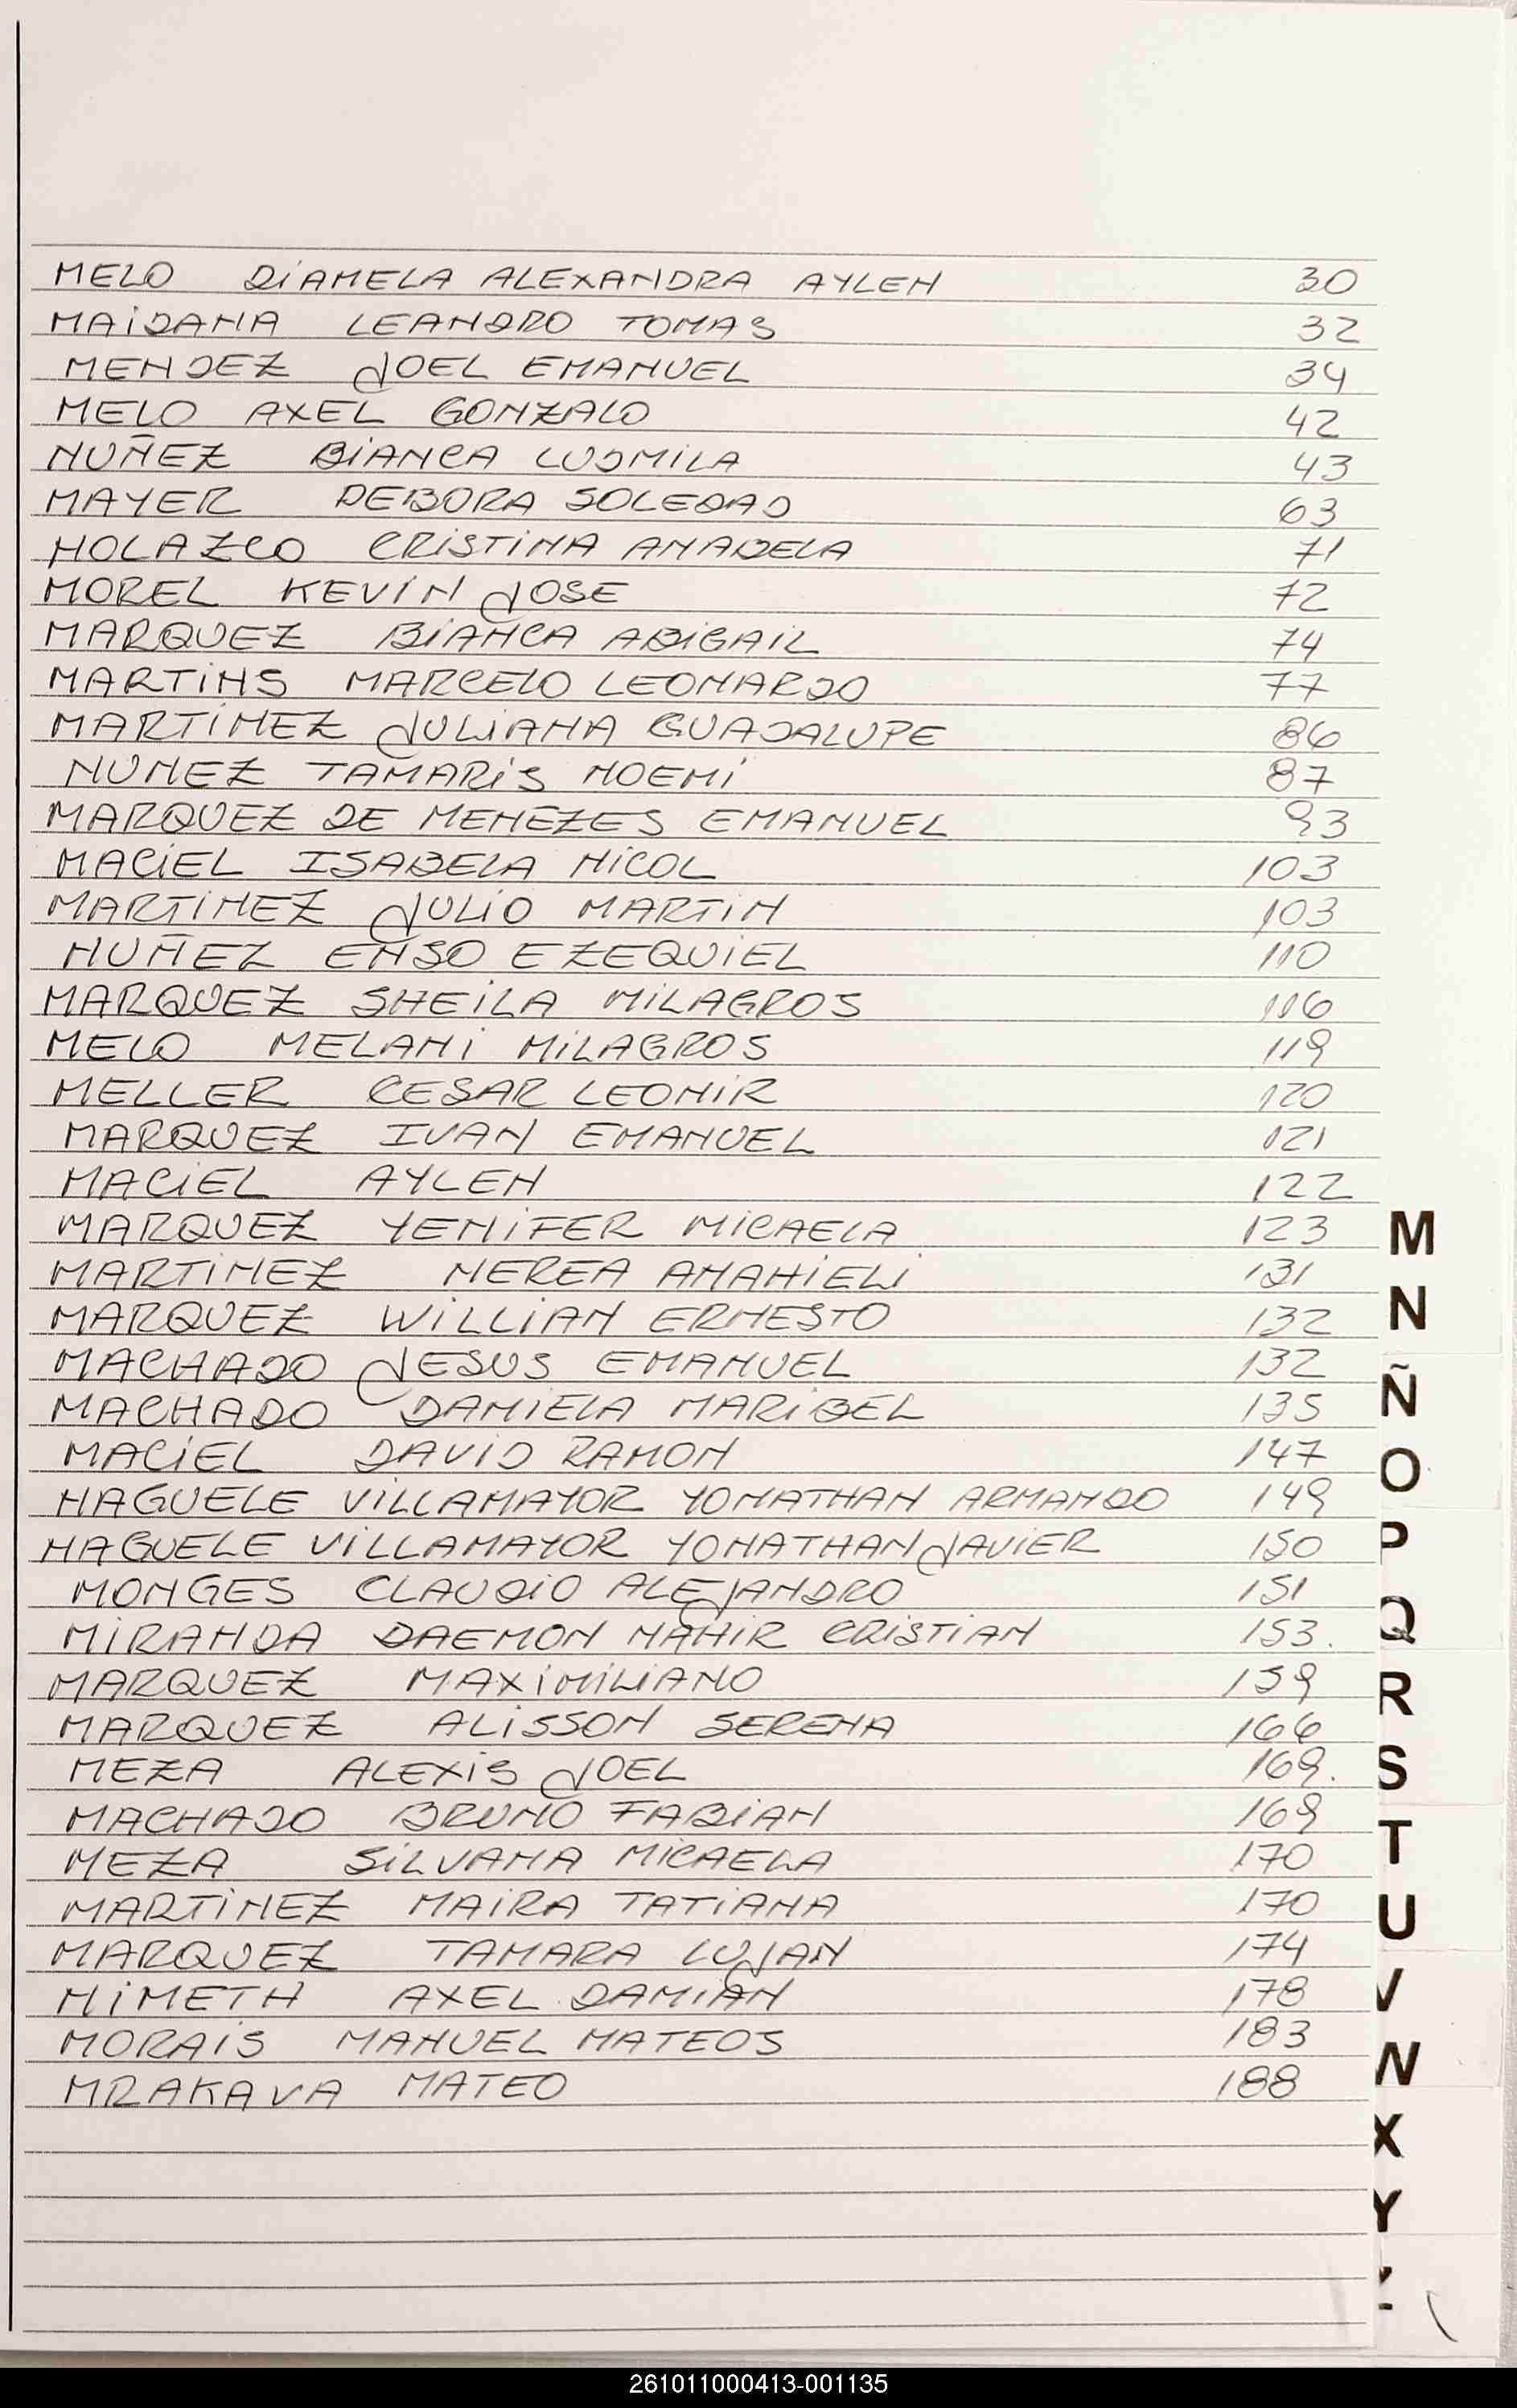 MELO DIAMELA ALEXANDRA AYLEN 30
MAIDANA LEANDRO TOMAS 32
MENDEZ JOEL EMANUEL 34
MELO AXEL GONZALO 42
NUÑEZ BIANCA LUDMILA 43
MAYER DEBORA SOLEDAD 63
NOLAZCO CRISTINA ANABELA 71
MOREL KEVIN JOSE 72
MARQUEZ BIANCA ABIGAIL 74
MARTINS MARCELO LEONARDO 77
MARTINEZ JULIANA GUADALUPE 86
NUNEZ TAMARIS NOEMI 87
MARQUEZ DE MENEZES EMANUEL 93
MACIEL ISABELA NICOL 103
MARTINEZ JULIO MARTIN 103
NUÑEZ ENSO EZEQUIEL 110
MARQUEZ SHEILA MILAGROS 116
MELO MELANI MILAGROS 119
MELLER CESAR LEONIR 120
MARQUEZ IVAN EMANUEL 121
MACIEL AYLEN 122
MARQUEZ YENIFER MICAELA 123
MARTINEZ NEREA ANAHIELI 131
MARQUEZ WILLIAN ERNESTO 132
MACHADO JESUS EMANUEL 132
MACHADO DANIELA MARIBEL 135
MACIEL DAVID RAMON 147
NAGUELE VILLAMAYOR YONATHAN ARMANDO 149
NAGUELE VILLAMAYOR YONATHAN JAVIER 150
MONGES CLAUDIO ALEJANDRO 151
MIRANDA DAEMON NAHIR CRISTIAN 153.
MARQUEZ MAXIMILIANO 159
MARQUEZ ALISSON SERENA 166
MEZA ALEXIS JOEL 169.
MACHADO BRUNO FABIAN 169
MEZA SILVANA MICAELA 170
MARTINEZ MAIRA TATIANA 170
MARQUEZ TAMARA LUJAN 174
NIMETH AXEL DAMIAN 178
MORAIS MANUEL MATEOS 183
MRAKAVA MATEO 188
M
N
Ñ
O
P
Q
R
S
T
U
V
W
X
Y
261011000413-001135